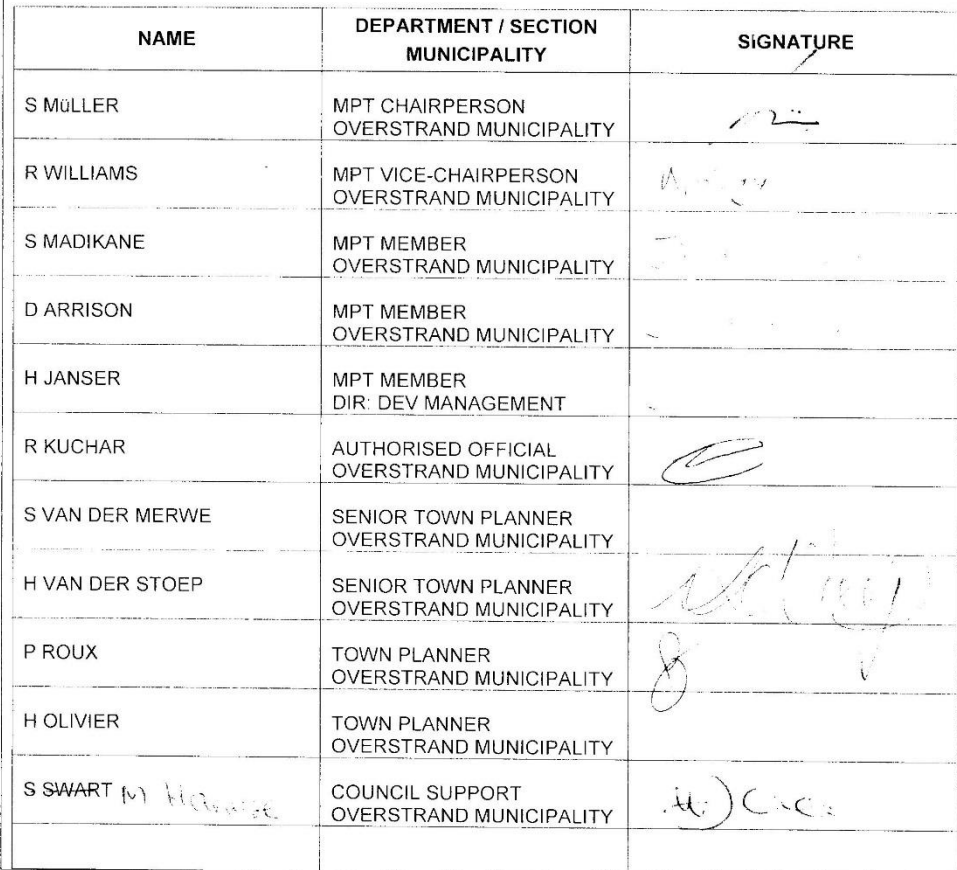 NAME
DEPARTMENT / SECTION
MUNICIPALITY
SIGNATURE
S MüLLER
MPT CHAIRPERSON
OVERSTRAND MUNICIPALITY
R WILLIAMS
MPT VICE-CHAIRPERSON
OVERSTRAND MUNICIPALITY
S MADIKANE
MPT MEMBER
OVERSTRAND MUNICIPALITY
D ARRISON
MPT MEMBER
OVERSTRAND MUNICIPALITY
H JANSER
MPT MEMBER
DIR: DEV MANAGEMENT
R KUCHAR
AUTHORISED OFFICIAL
OVERSTRAND MUNICIPALITY
S VAN DER MERWE
SENIOR TOWN PLANNER
OVERSTRAND MUNICIPALITY
H VAN DER STOEP
SENIOR TOWN PLANNER
OVERSTRAND MUNICIPALITY
P ROUX
TOWN PLANNER
OVERSTRAND MUNICIPALITY
H OLIVIER
TOWN PLANNER
OVERSTRAND MUNICIPALITY
S SWART M
COUNCIL SUPPORT
OVERSTRAND MUNICIPALITY